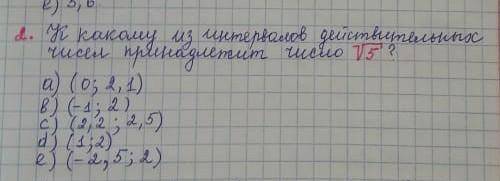 e) 3, 6
2. К какому из интервалов действительных
чисел принадлетит число √5 ?
a) (0; 2,1)
в) (-1; 2)
c) (2,2 ; 2,5)
d) (1;2)
e) (-2,5; 2)